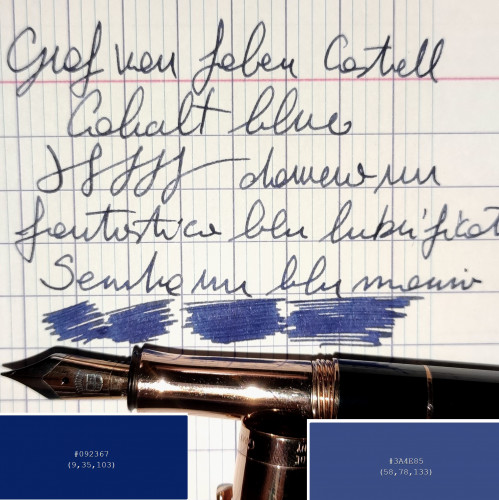 Graf von Faber Castell
Cobalt blue
davvero un
fantastico blu lubrificat
Sembra un blu marino
#092367
(9,35,103)
#3A4E85
(58,78,133)